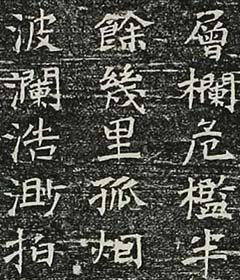 層欄危檻半
餘幾里孤烟
波瀾浩渺拍